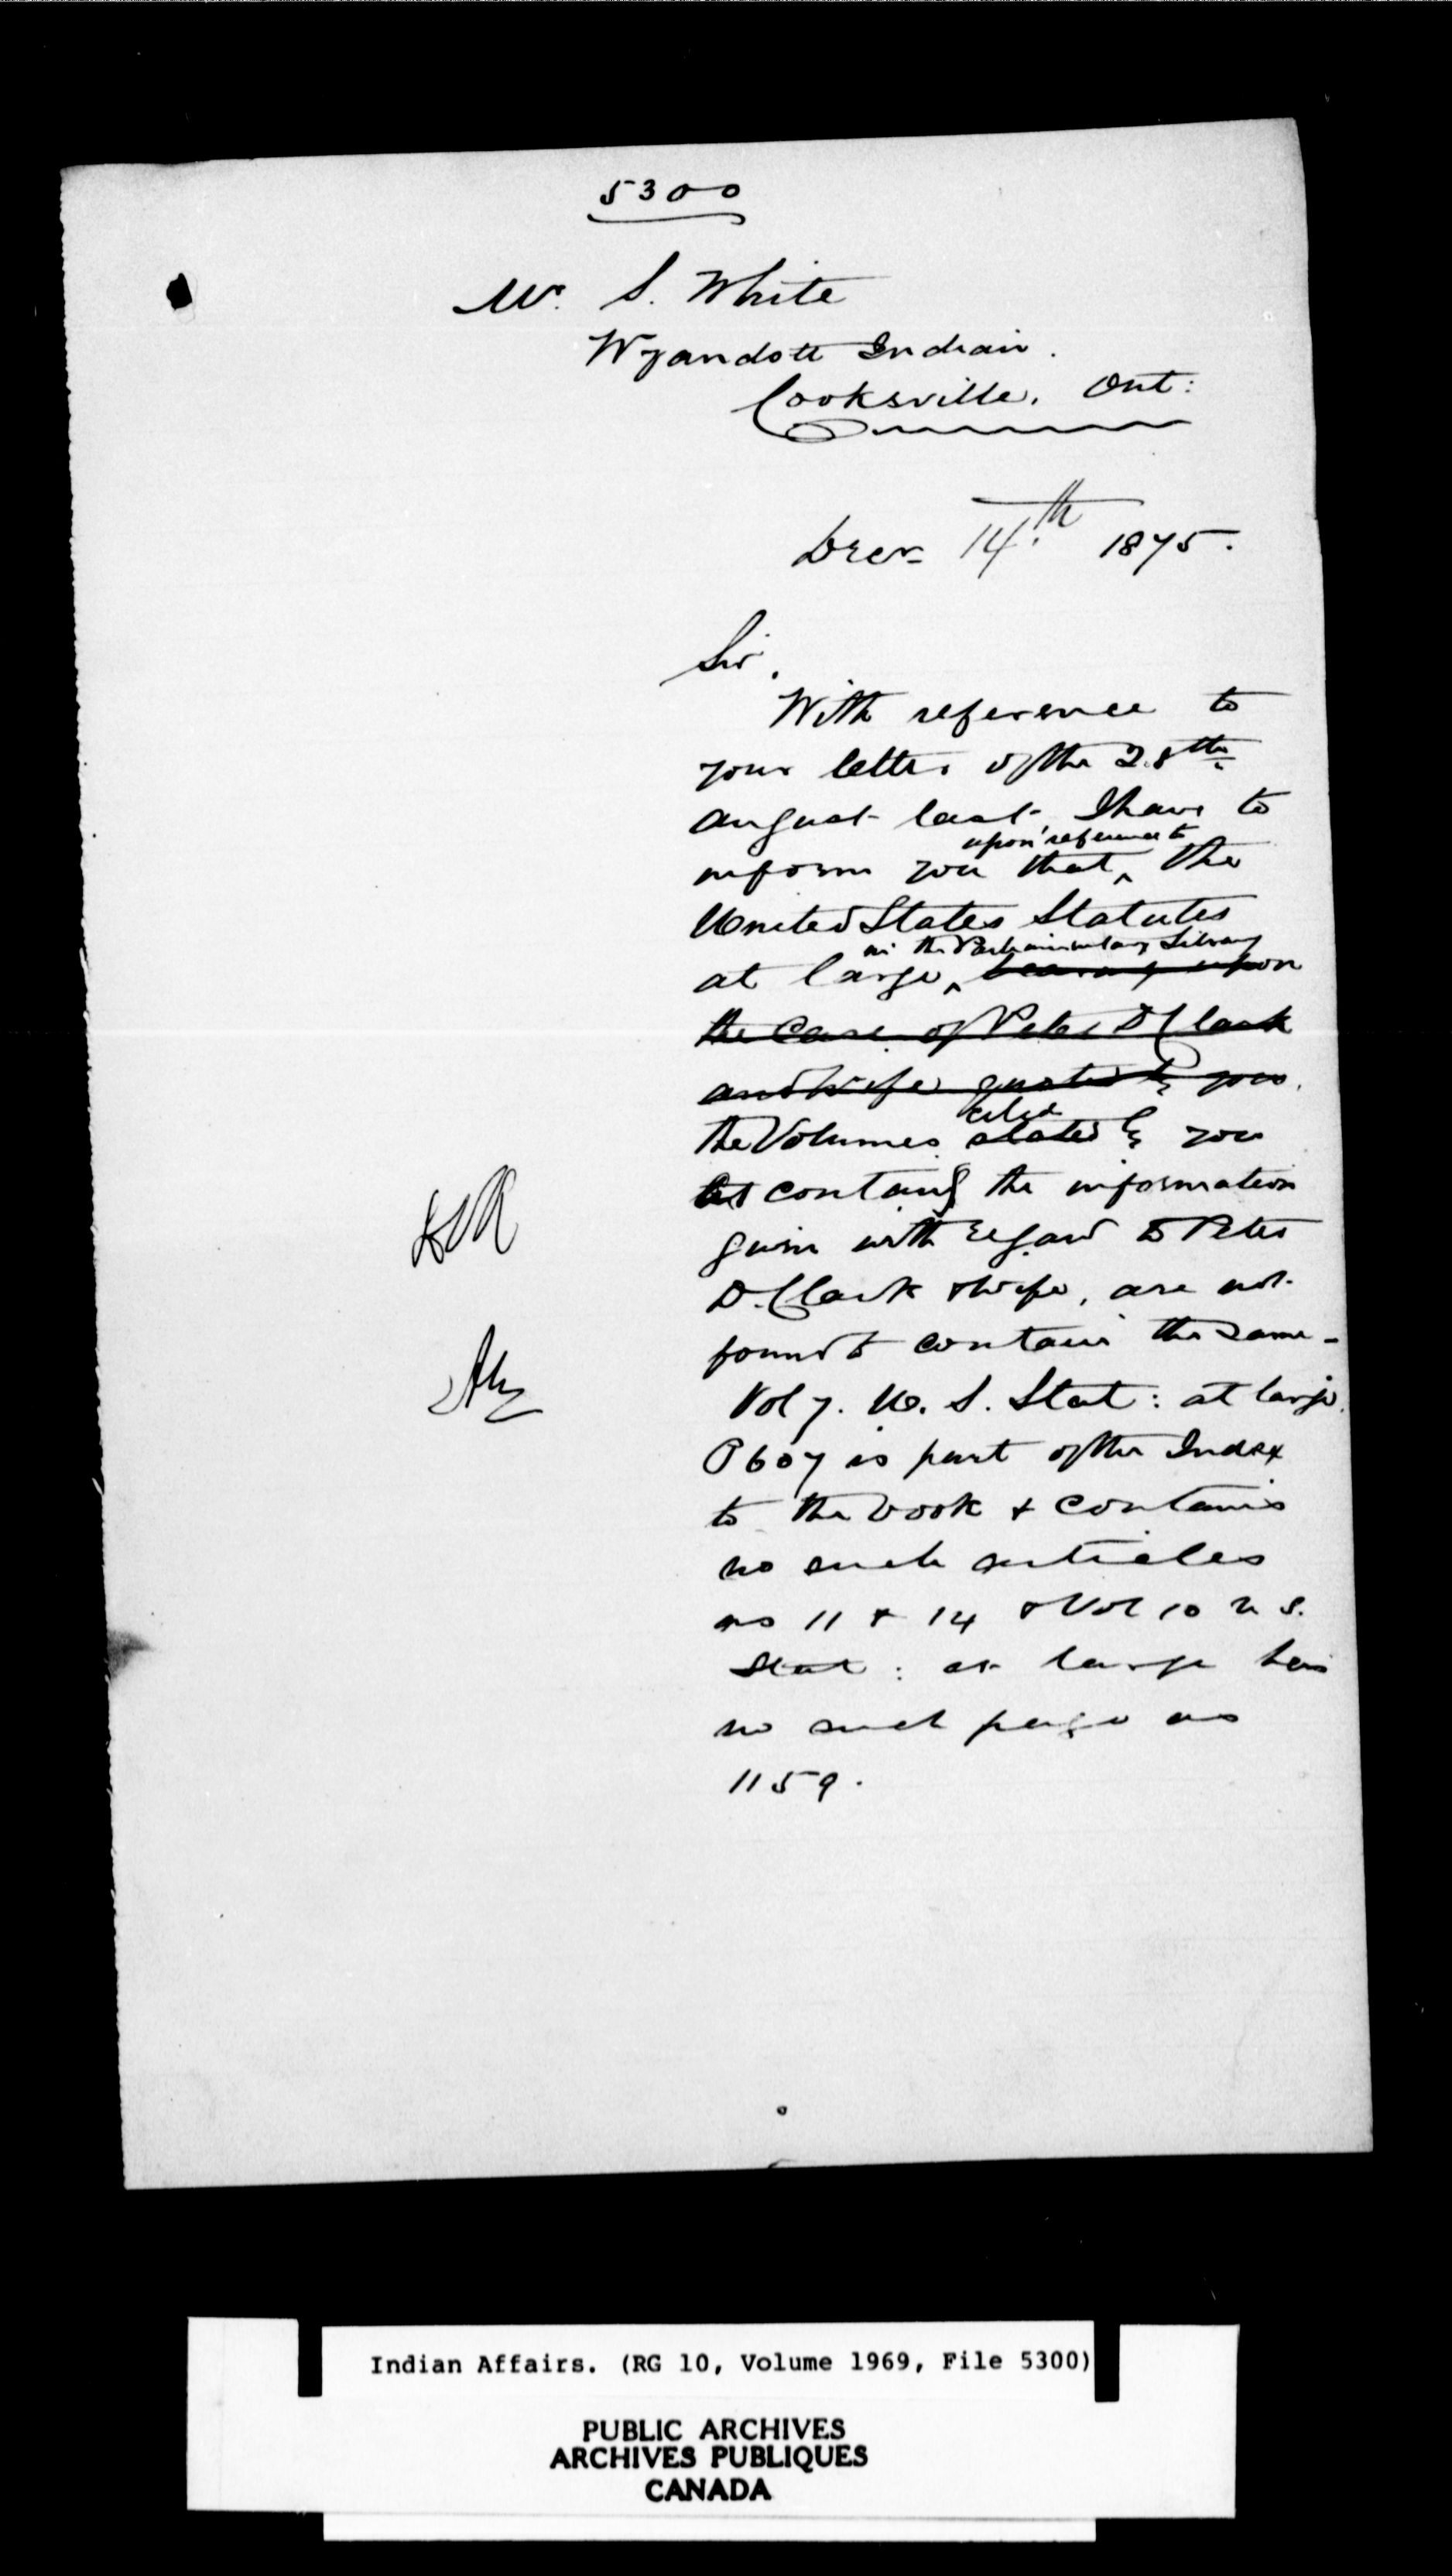 5300
Mr. S. White
Wyandott Indian.
Cooksville. Ont:
Decr 14th 1875.
Sir,
With reference to
your letter of the 28th
August last, I have to
upon reference to
inform you that ^ the
United States Statutes
in the Parliamentary Library
at large, ^ bearing upon
the case of Peter D Clark
and Wife quoted by you
cited
the Volumes stated by you
as containg the information
given with regard to Peter
D. Clark & wife, are not
found to contain the same -
Vol 7. U. S. Stat: at large.
P 607 is part of the Index
to the book & contains
no such articles
as 11 & 14 & Vol 10 U S.
Stat: at large has
no such page as
1159.
Indian Affairs. (RG 10, Volume 1969, File 5300)
PUBLIC ARCHIVES
ARCHIVES PUBLIQUES
CANADA